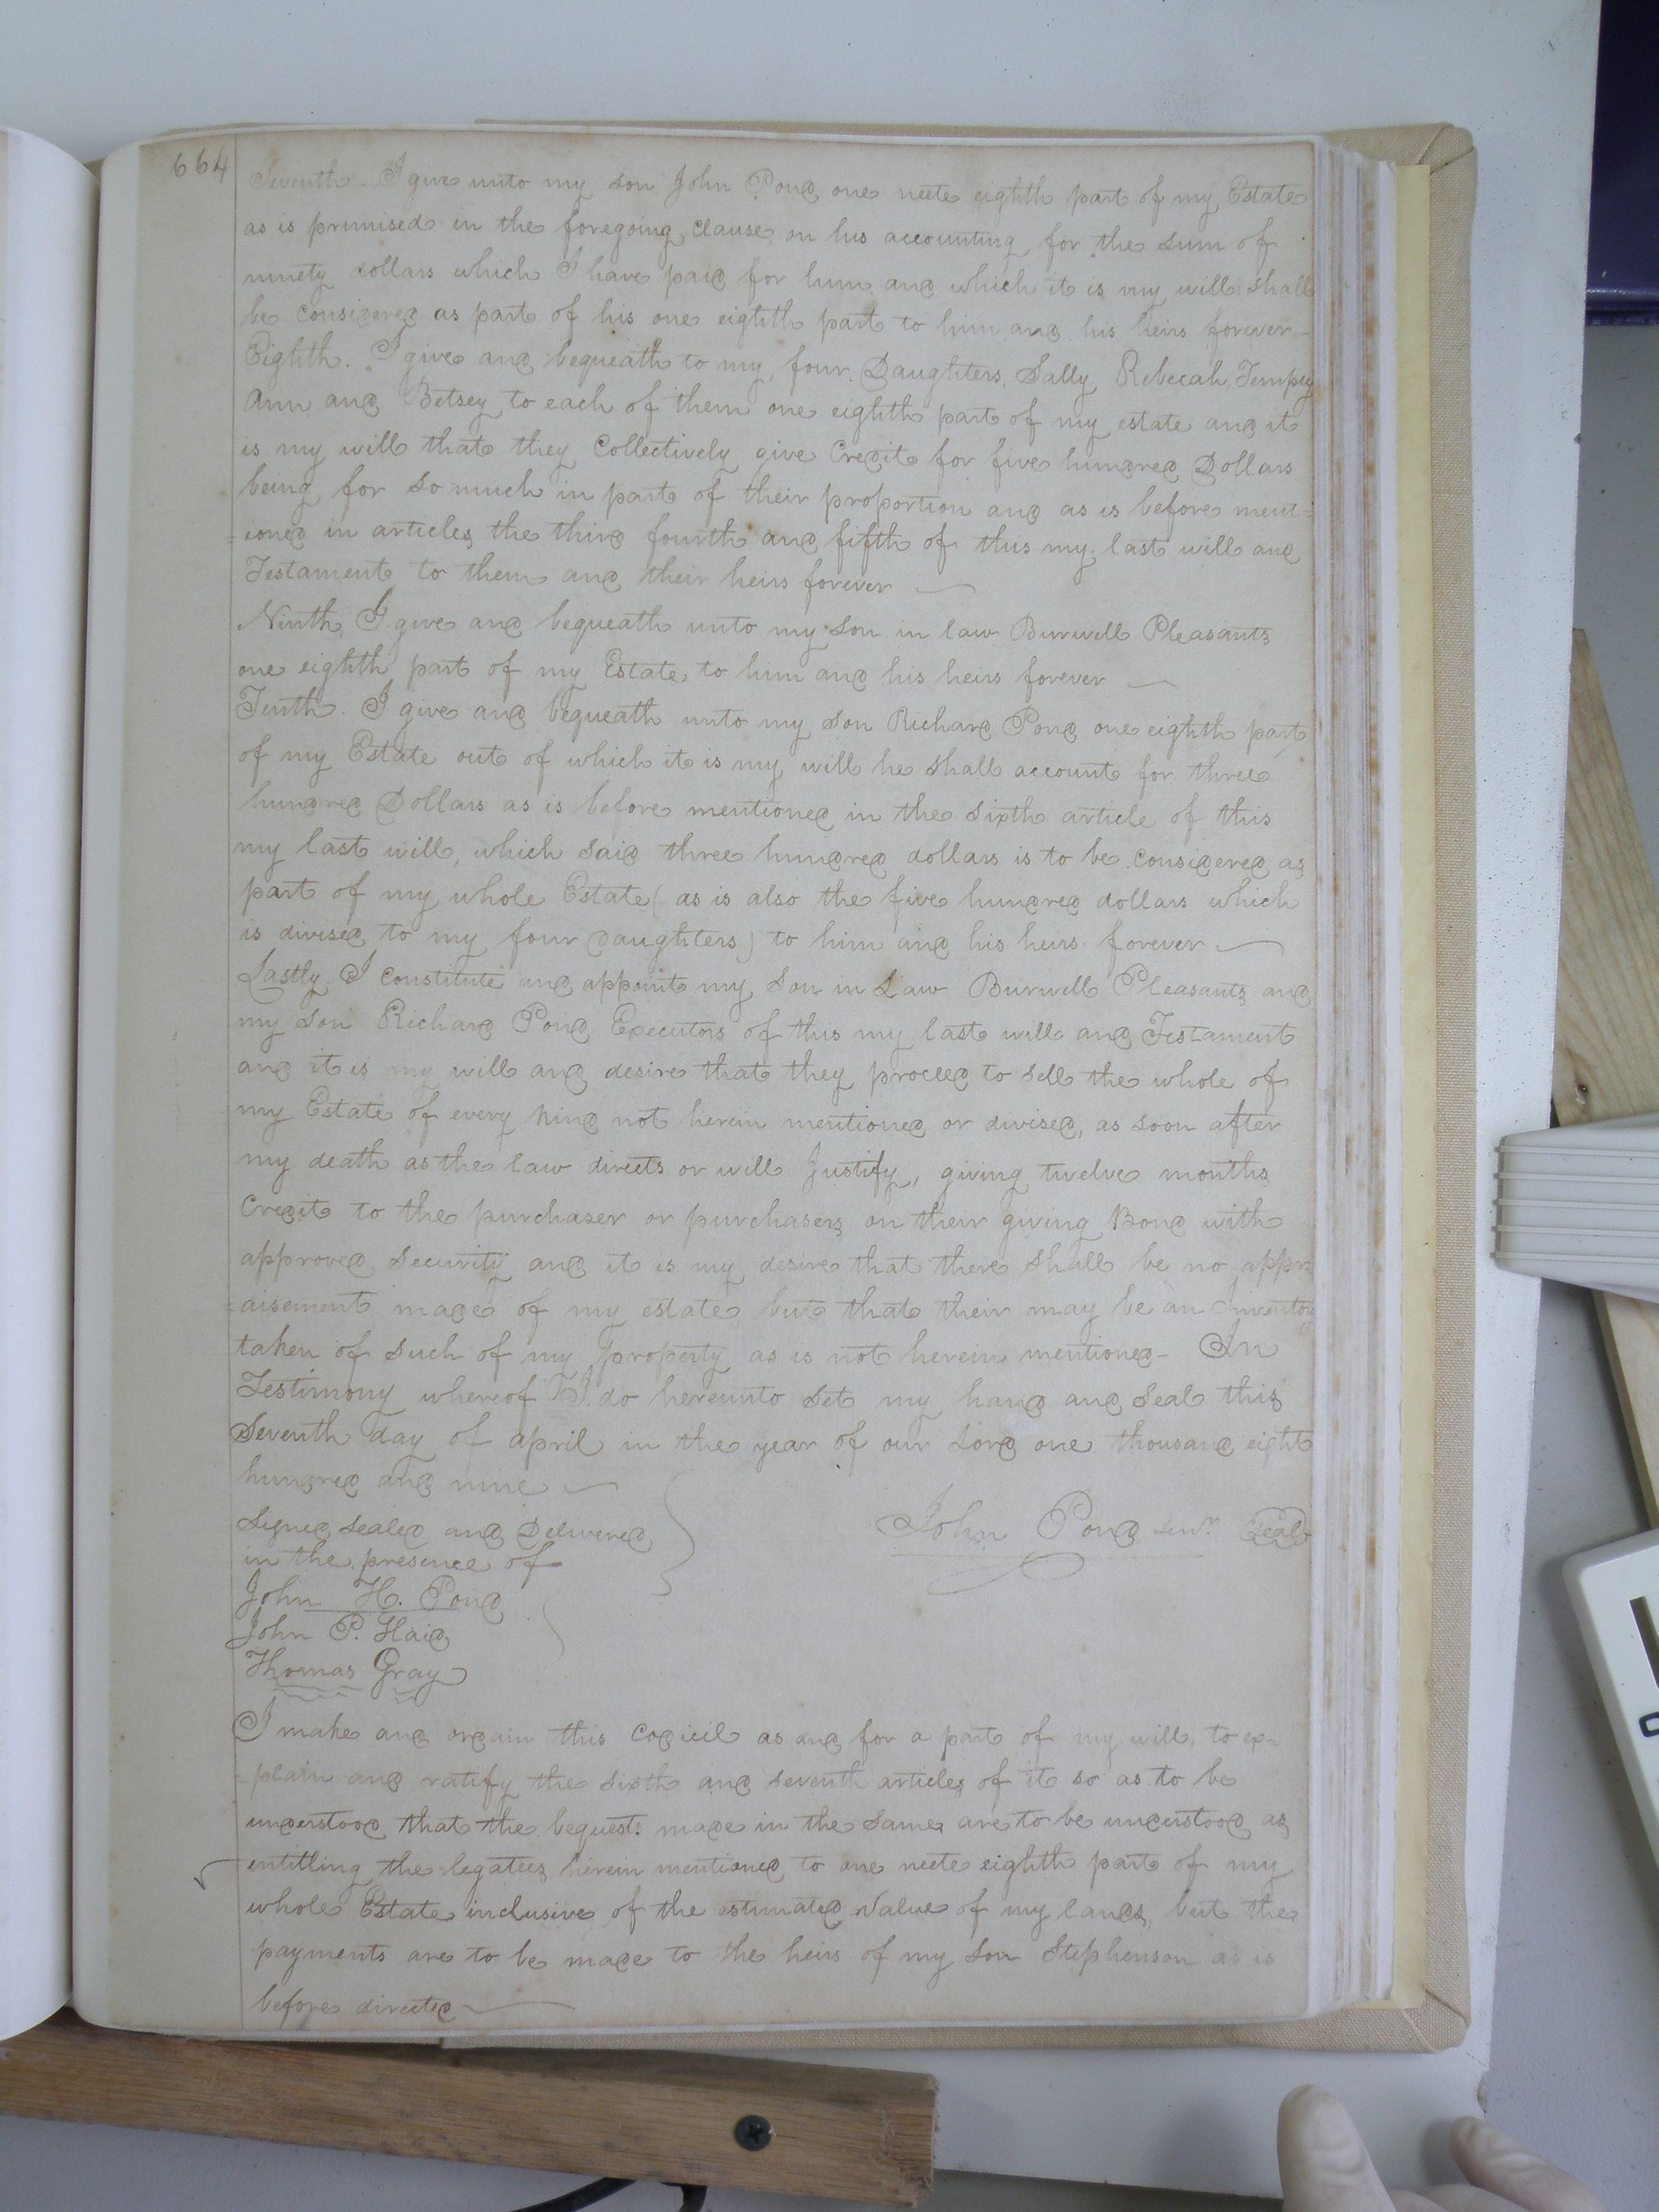 664
Seventh - I give unto my son John Pond one neete eighth part of my Estate
as is primised in the foregoing clause on his accounting for the sum of
ninety dollars which I have paid for him and which it is my will shall
be considered as part of his one eighth part to him and his heirs forever -
Eighth. I give and bequeath to my four Daughters, Sally, Rebecah, Tempy
Ann and Betsey to each of them one eighth part of my estate and it
is my will that they Collectively give Credit for five hundred Dollars
being for so much in part of their proportion and as is before ment=
=ioned in articles the third fourth and fifth of this my last will and
Testament to them and their heirs forever —
Ninth I give and bequeath unto my son in law Burwell Pleasants
one eighth part of my Estate to him and his heirs forever —
Tenth. I give and bequeath unto my son Richard Pond one eighth part
of my Estate out of which it is my will he shall account for three
hundred Dollars as is before mentioned in the sixth article of this
my last will, which said three hundred dollars is to be considered as
part of my whole Estate (as is also the five hundred dollars which
is divised to my four daughters) to him and his heirs forever —
Lastly I constitute and appoint my son in Law Burwell Pleasants and
my son Richard Pond Executors of this my last will and Testament
and it is my will and desire that they proceed to sell the whole of
my Estate of every kind not herein mentioned or divised, as soon after
my death as the law directs or will Justify, giving twelve months
Credit to the purchaser or purchasers on their giving Bond with
approved security and it is my desire that there shall be no appr
=aisement made of my estate but that their may be an Inventory
taken of such of my property as is not herein mentioned - In
Testimony whereof I do hereunto set my hand and seal this
Seventh day of april in the year of our Lord one thousand eight
hundred and nine —
Signed sealed and Delivered
in the presence of
John Pond senr. Seal
John H. Pond
John P. Haid
Thomas Gray
I make and ordain this codicil as and for a part of my will, to ex=
=plain and ratify the sixth and seventh articles of it so as to be
understood that the bequest made in the same are to be understood as
entitling the legatees herein mentioned to one neete eighth part of my
whole Estate inclusive of the estimated Value of my lands, but the
payments are to be made to the heirs of my son Stephenson as is
before directed —